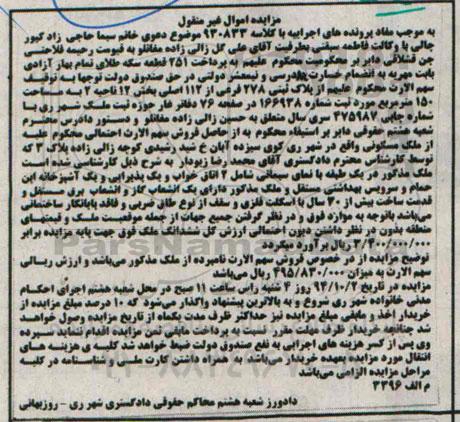 مزایده اموال غیر منقول
به موجب مفاد پرونده های اجراییه با کلاسه ۹۳۰۸۳۳ موضوع دعوی خانم سیما حاجی زاد کیور
جالی با وکالت فاطمه سیفتی بطرفیت آقای علی گل زالی زاده مقانلو به قیمومت رحیمه فلاحتی
جن قشلاقی دایر بر محکومیت محکوم علیهم به پرداخت ۲۵۱ قطعه سکه طلای تمام بهار آزادی
بابت مهریه به انضمام خسارت دادرسی و نیمعشر دولتی در حق صندوق دولت توجها به توقیف
سهم الارث محکوم علیهم از پلاک ثبتی ۲۷۸ فرعی از ۱۱۲ اصلی بخش ۱۲ ناحیه ۲ به مساحت
۱۵۰ مترمربع مورد ثبت شماره ۱۶۶۹۳۸ در صفحه ۷۶ دفاتر فار حوزه ثبت ملک شهر ری با
شماره چاپی ۴۷۵۹۸۷ سری سال متعلق به حسن زالی زاده مقانلو و دستور دادرس محترم
شعبه هشتم حقوقی دایر بر استیفاء محکوم به از حاصل فروش سهم الارث احتمالی محکوم علیه
از ملک مسکونی واقع در شهر ری کوی سیزده آبان خ شید رشیدی کوچه زالی زاده پلاک ۳ که
توسط کارشناس محترم دادگستری آقای محمد رضا زیودار به شرح ذیل کارشناسی شده است
ملک مذکور در یک طبقه با نمای سیمانی شامل ۲ اتاق خواب و یک پذیرایی و یک آشپزخانه این
حمام و سرویس بهداشتی مستقل و ملک مذکور دارای یک انشعاب گاز و انشعاب برق مستقل و
قدمت ساخت بیش از ۳۰ سال با اسکلت فلزی و سقف از نوع طاق ضربی و فاقد پایانکار ساختمانی
می‌باشد باتوجه به موارد فوق و در نظر گرفتن جمیع جهات از جمله موقعیت ملک و قیمتهای
منطقه بدون در نظر داشتن دیون احتمالی ارزش کل ششدانگ ملک فوق جهت پایه مزایده برابر
۳/۴۰۰/۰۰۰/۰۰۰ ریال برآورد میگردد
توضیح مزایده از در خصوص فروش سهم الارث نامبرده از ملک مذکور می‌باشد و ارزش ریالی
سهم الارث به میزان ۴۹۵/۸۳۰/۰۰۰ ریال می‌باشد
مزایده در تاریخ ۹۴/۱۰/۲ روز ۴ شنبه راس ساعت ۱۱ صبح در محل شعبه هشتم اجرای احکام
مدنی خانواده شهر ری شروع و به بالاترین پیشنهاد واگذار می‌شود که ۱۰ درصد مبلغ مزایده از
خریدار اخذ و مابقی مبلغ مزایده نیز حداکثر ظرف مدت یکماه از تاریخ مزایده وصول خواهد
شد چنانچه خریدار ظرف مهلت مقرر نسبت به پرداخت مابقی ثمن مزایده اقدام ننماید سپرده
وی پس از کسر هزینه های اجرایی به نفع صندوق دولت ضبط خواهد شد کلیه ی هزینه های
انتقال مورد مزایده بعهده خریدار می‌باشد به همراه داشتن کارت ملی و شناسنامه در کلیه
مراحل مزایده الزامی می‌باشد
م الف ۳۳۹۶
دادورز شعبه هشتم محاکم حقوقی دادگستری شهر ری - روزبهانی